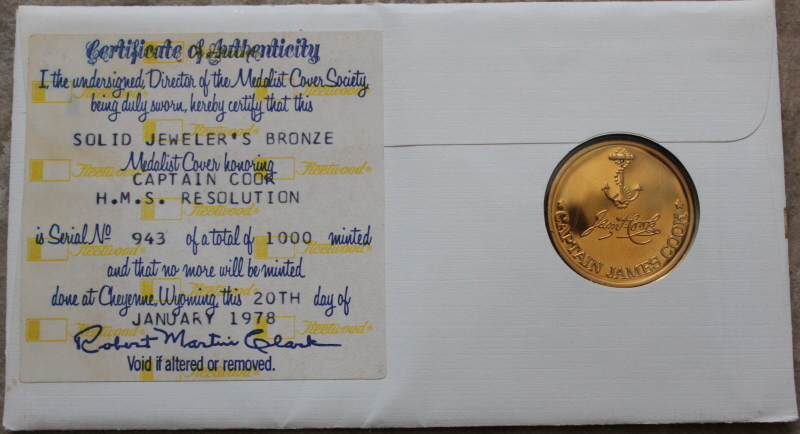 Certificate of Authenticity
I, the undersigned, Director of the Medalist Cover Society,
being duly sworn, hereby certify that this
SOLID JEWELER'S BRONZE
Medalist Cover honoring
CAPTAIN COOK
H.M.S. RESOLUTION
is Serial Nº 943 of a total of 1000 minted
and that no more will be minted
done at Cheyenne, Wyoming, this 20TH day of
JANUARY 1978
Robert Martin Clark
Void if altered or removed.
Fleetwood®
Fleetwood®
Fleetwood®
Fleetwood®
Fleetwood®
Fleetwood®
Fleetwood®
Fleetwood®
Fleetwood®
Fleetwood®
Jams Cook
CAPTAIN JAMES COOK